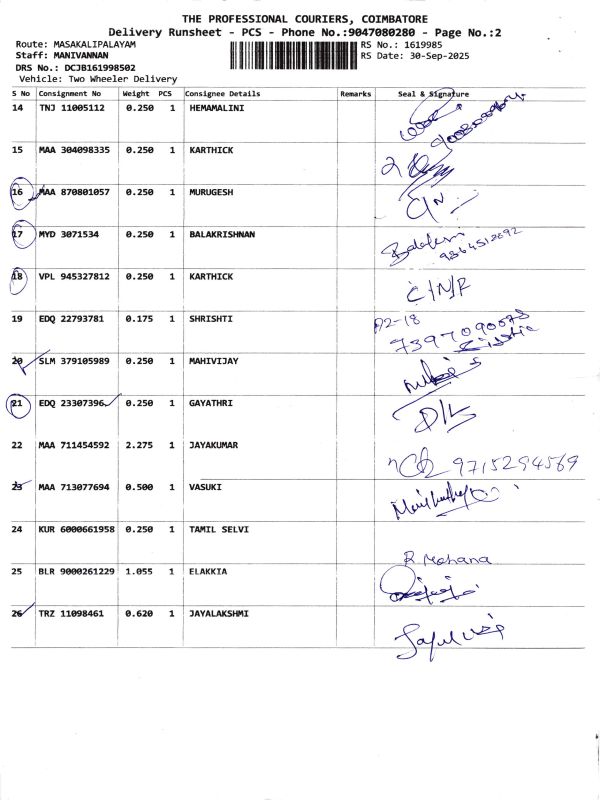 THE PROFESSIONAL COURIERS, COIMBATORE
Delivery Runsheet - PCS - Phone No.:9047080280 - Page No.:2
Route: MASAKALIPALAYAM RS No.: 1619985
Staff: MANIVANNAN RS Date: 30-Sep-2025
DRS No.: DCJB161998502
Vehicle: Two Wheeler Delivery
S No Consignment No Weight PCS Consignee Details Remarks Seal & Signature
14 TNJ 11005112 0.250 1 HEMAMALINI
15 MAA 304098335 0.250 1 KARTHICK
16 MAA 870801057 0.250 1 MURUGESH
17 MYD 3071534 0.250 1 BALAKRISHNAN
18 VPL 945327812 0.250 1 KARTHICK
19 EDQ 22793781 0.175 1 SHRISHTI A2-18
7397090078
20 SLM 379105989 0.250 1 MAHIVIJAY
21 EDQ 23307396 0.250 1 GAYATHRI D/L
22 MAA 711454592 2.275 1 JAYAKUMAR 9715294569
23 MAA 713077694 0.500 1 VASUKI
24 KUR 6000661958 0.250 1 TAMIL SELVI R Mohana
25 BLR 9000261229 1.055 1 ELAKKIA
26 TRZ 11098461 0.620 1 JAYALAKSHMI